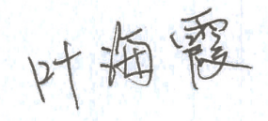 叶海霞